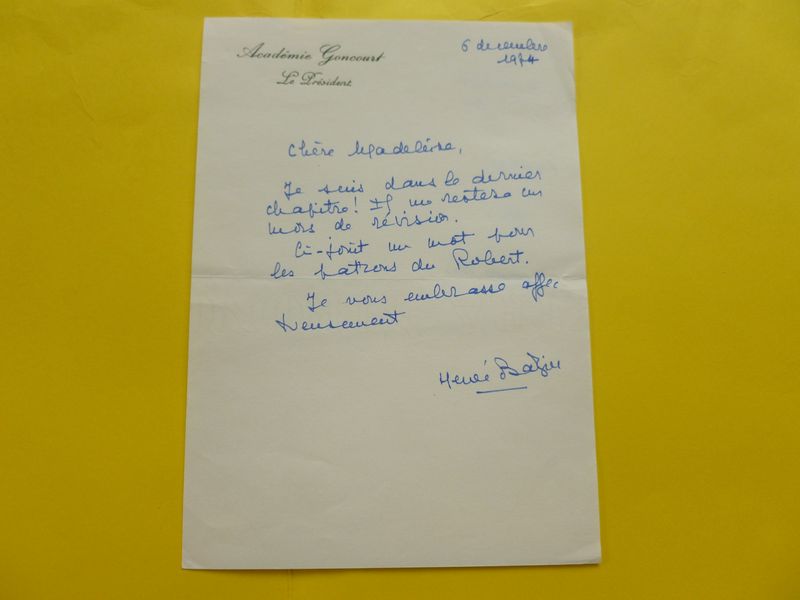 Académie Goncourt
Le Président
6 decembre
1974
Chère Madeleine,
Je suis dans le dernier
chapitre! Il me restera un
mois de révision.
Ci-joint un mot pour
les patrons du Robert.
Je vous embrasse affec
tueusement
Hervé Bazin